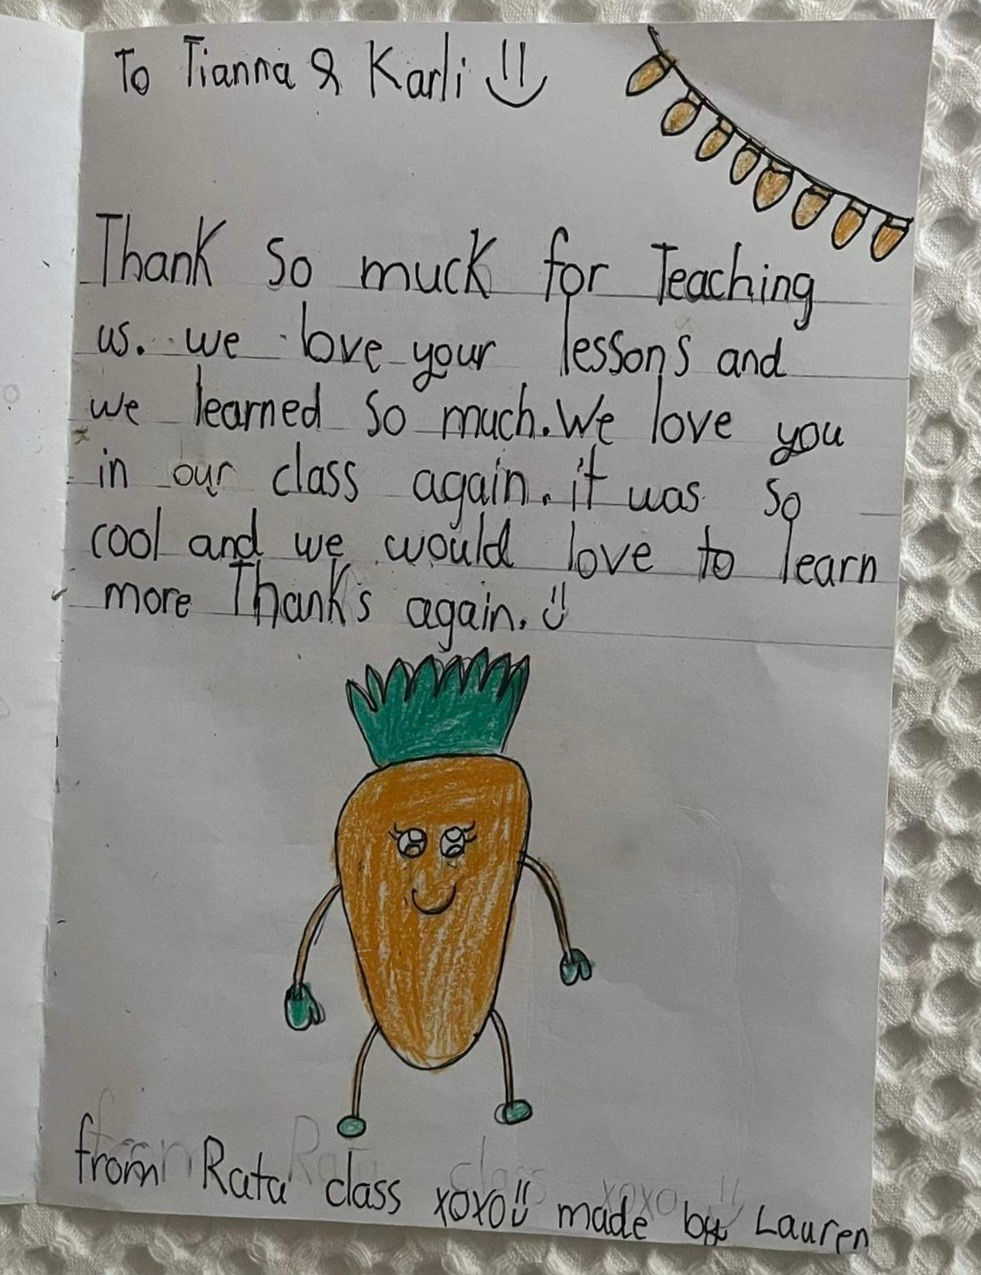 To Tianna & Karli
Thank so muck for Teaching
us. we love your lessons and
we learned so much. We love you
in our class again. it was so
cool and we would love to learn
more Thanks again.
from Rata class xoxo!! made by Lauren